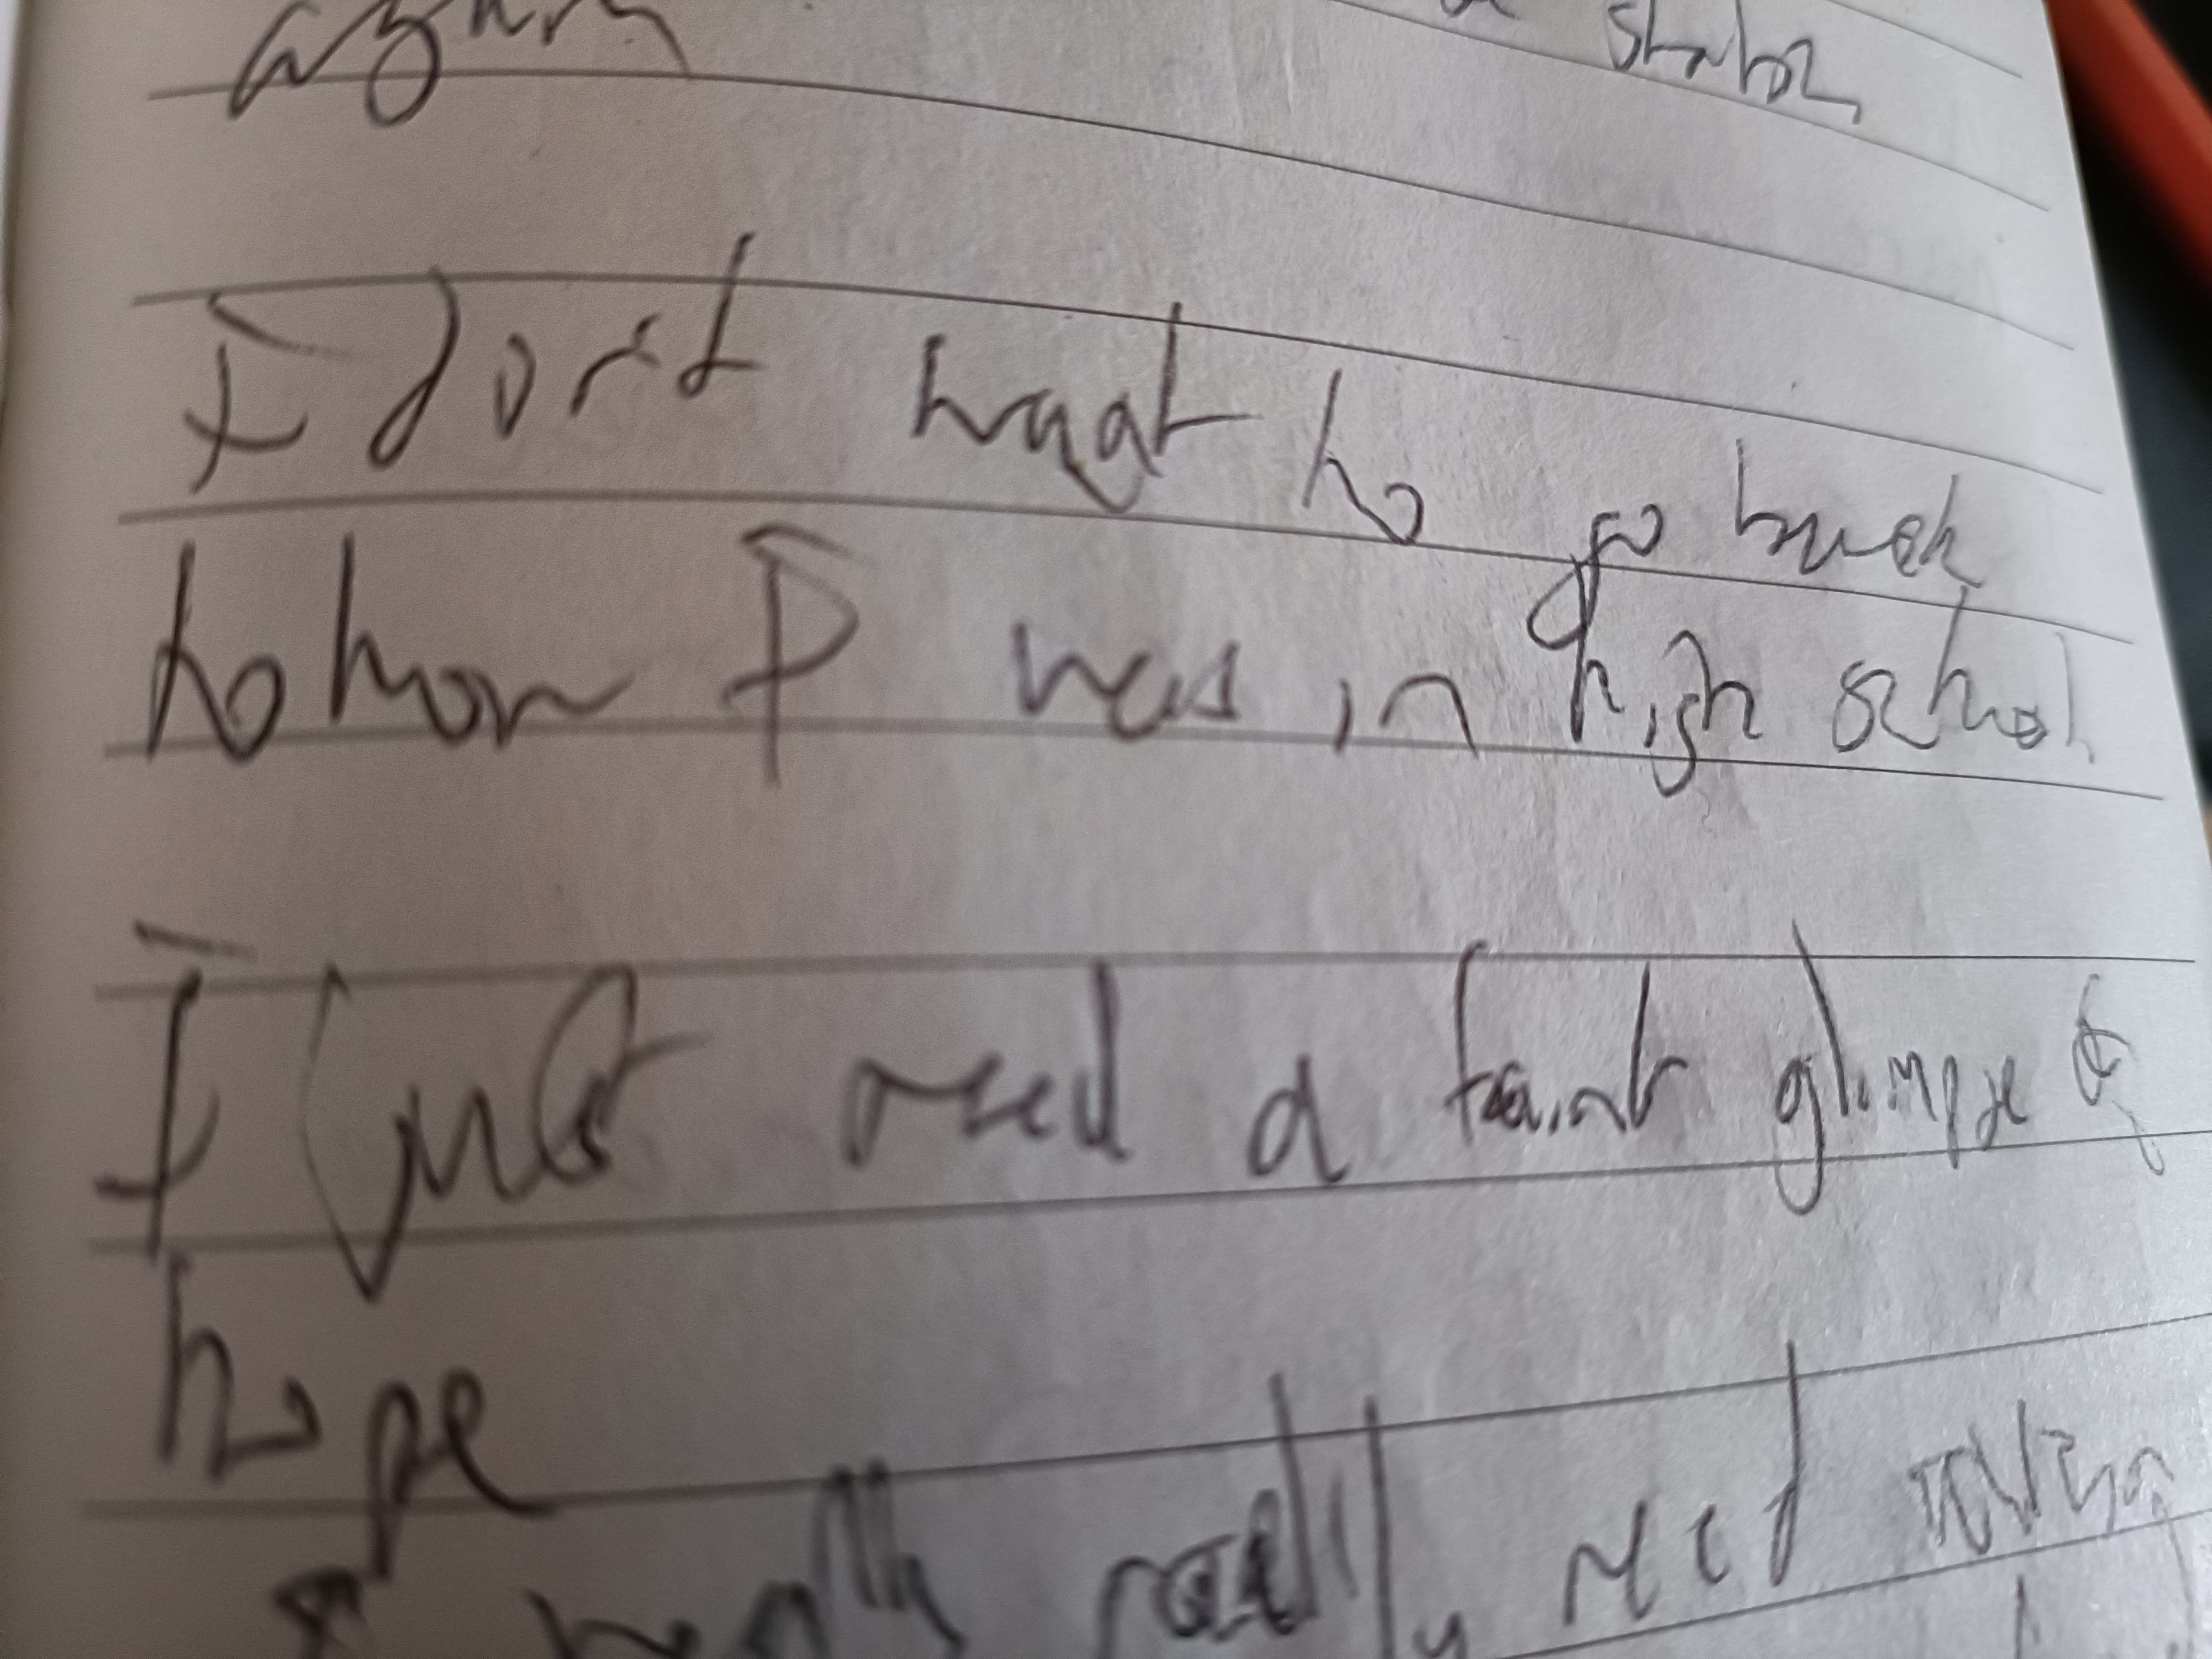 again
I don't want to go back
to how I was in high school
I just need a faint glimpse of
hope
I really really need